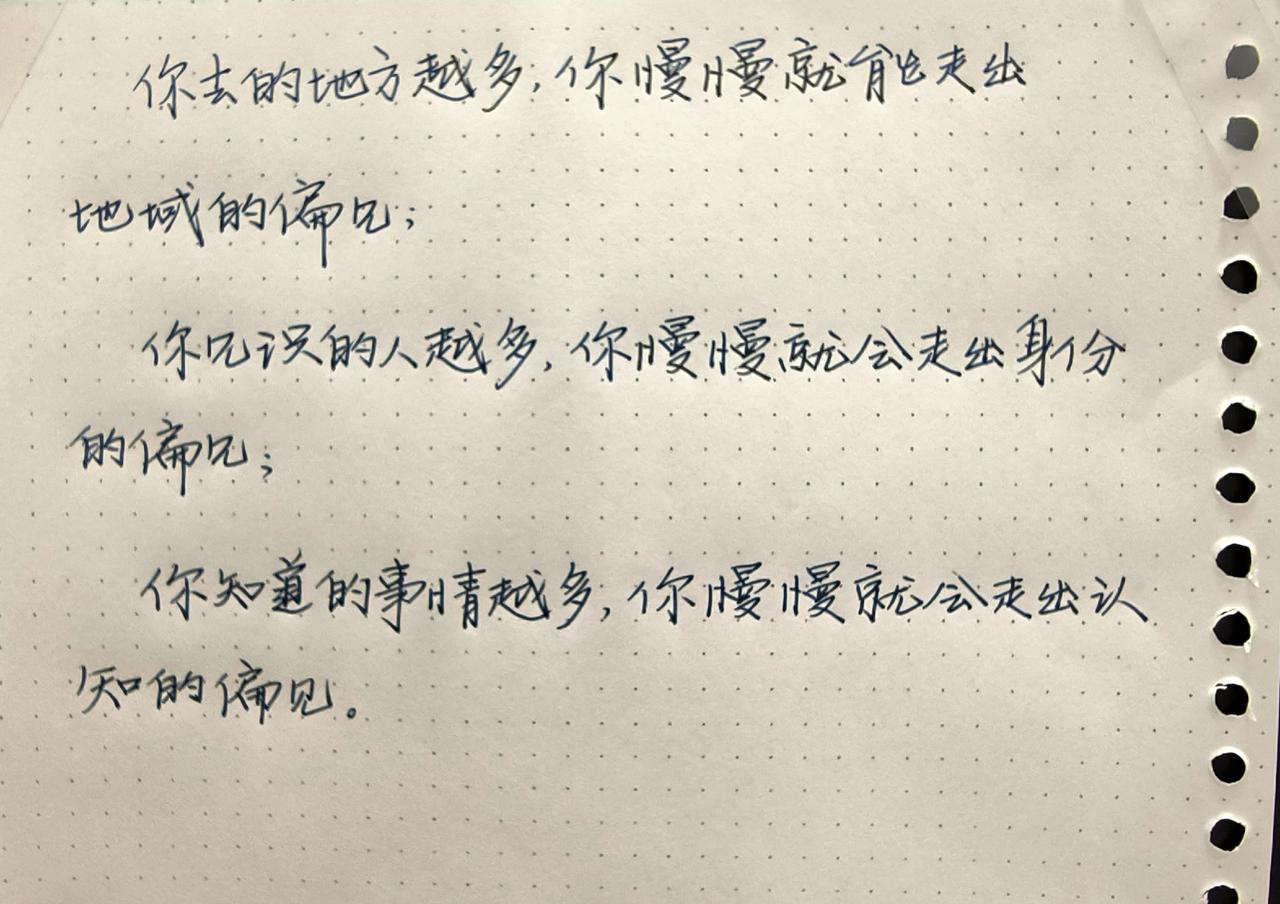 你去的地方越多,你慢慢就能走出
地域的偏见;
你见识的人越多,你慢慢就会走出身份
的偏见;
你知道的事情越多,你慢慢就会走出认
知的偏见。